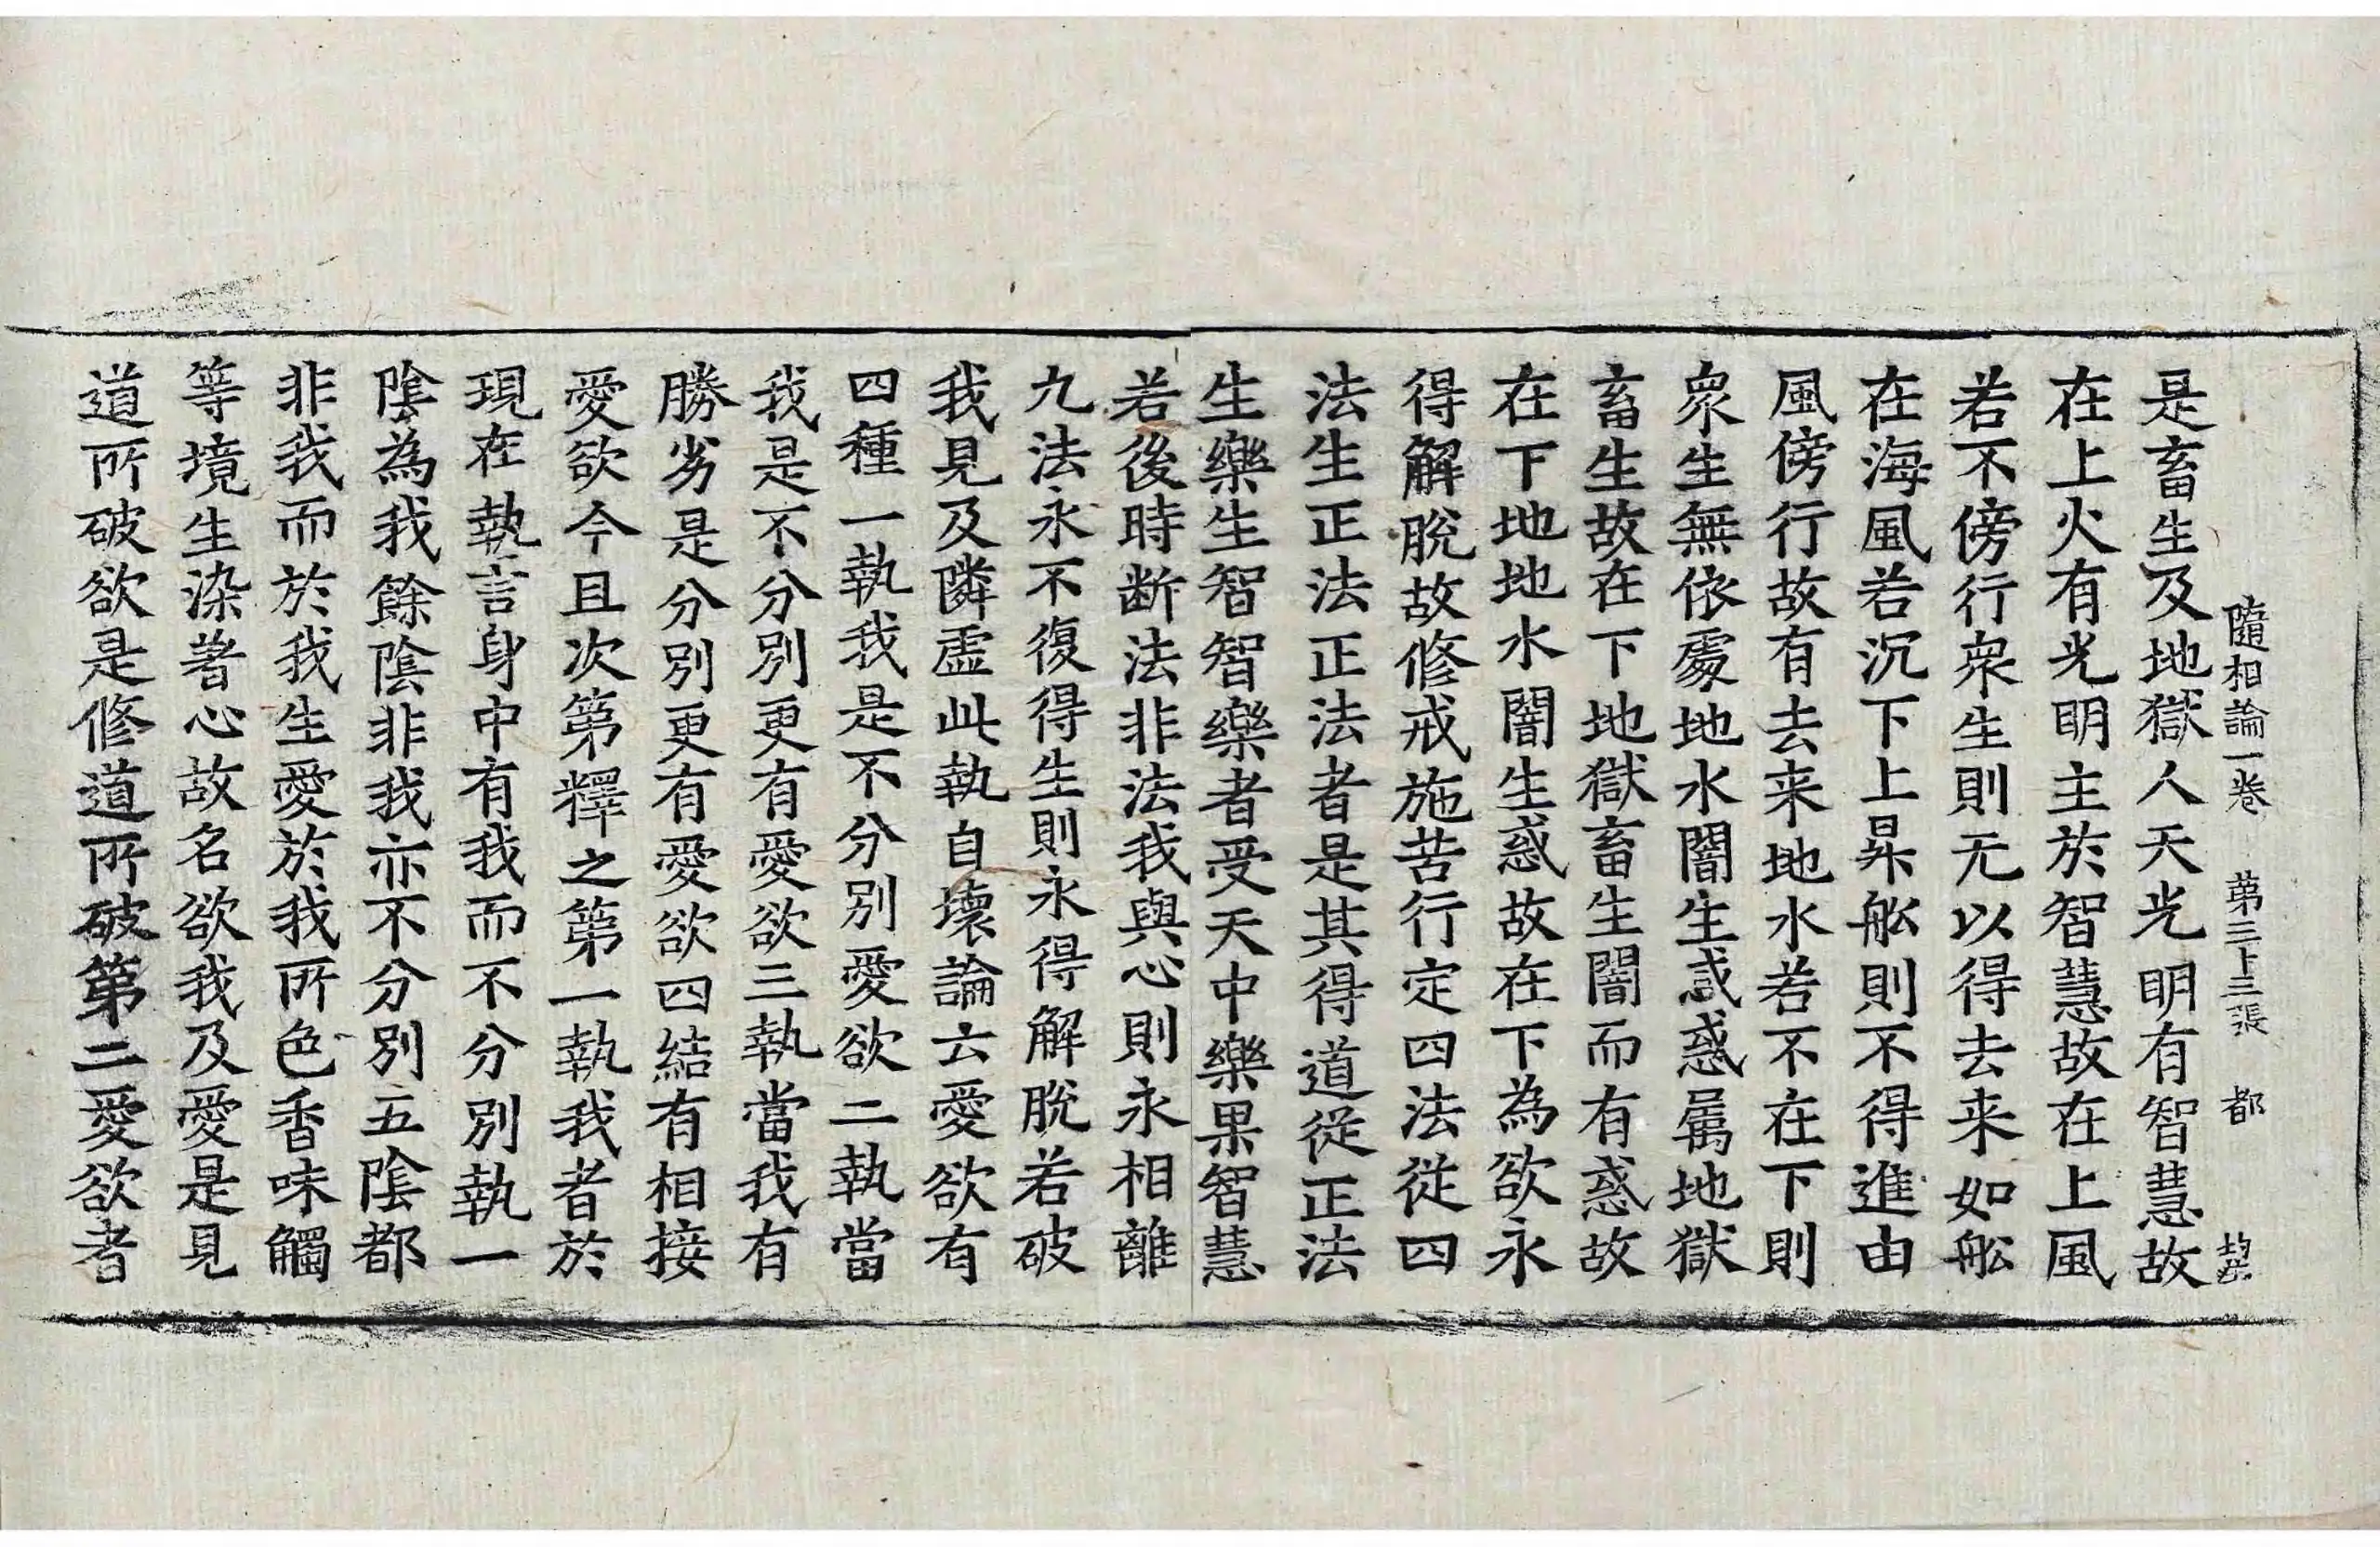 隨相論一卷 第三十三張 都
是畜生及地獄人天光明有智慧故
在上火有光明主於智慧故在上風
若不傍行衆生則无以得去来如舩
在海風若沉下上昇舩則不得進由
風傍行故有去来地水若不在下則
衆生無依處地水闇生惑惑屬地獄
畜生故在下地獄畜生闇而有惑故
在下地地水闇生惑故在下為欲永
得解脫故修戒施苦行定四法從四
法生正法正法者是其得道從正法
生樂生智智樂者受天中樂果智慧
若後時断法非法我與心則永相離
九法永不復得生則永得解脫若破
我見及隣虛此執自壞論云愛欲有
四種一執我是不分別愛欲二執當
我是不分別更有愛欲三執當我有
勝劣是分別更有愛欲四結有相接
愛欲今且次第釋之第一執我者於
現在執言身中有我而不分別執一
陰為我餘陰非我亦不分別五陰都
非我而於我生愛於我所色香味觸
等境生染著心故名欲我及愛是見
道所破欲是修道所破第二愛欲者